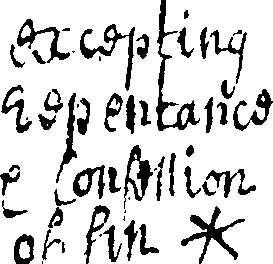 excepting
Repentance
& Confession
of sin *